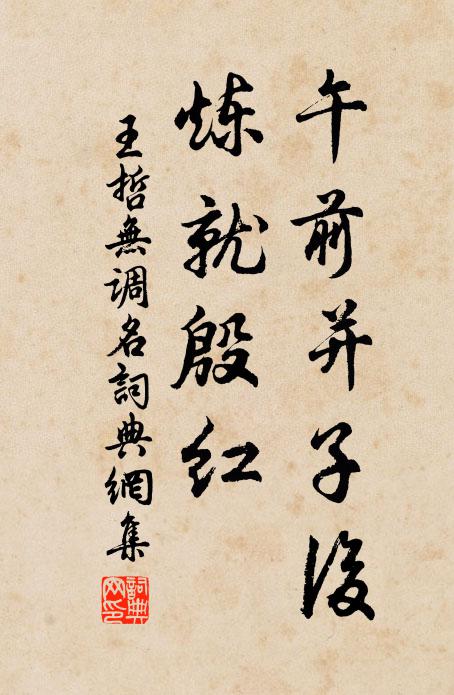 午前并子後
炼就殷红
王哲無調名詞典網集
詞典网印